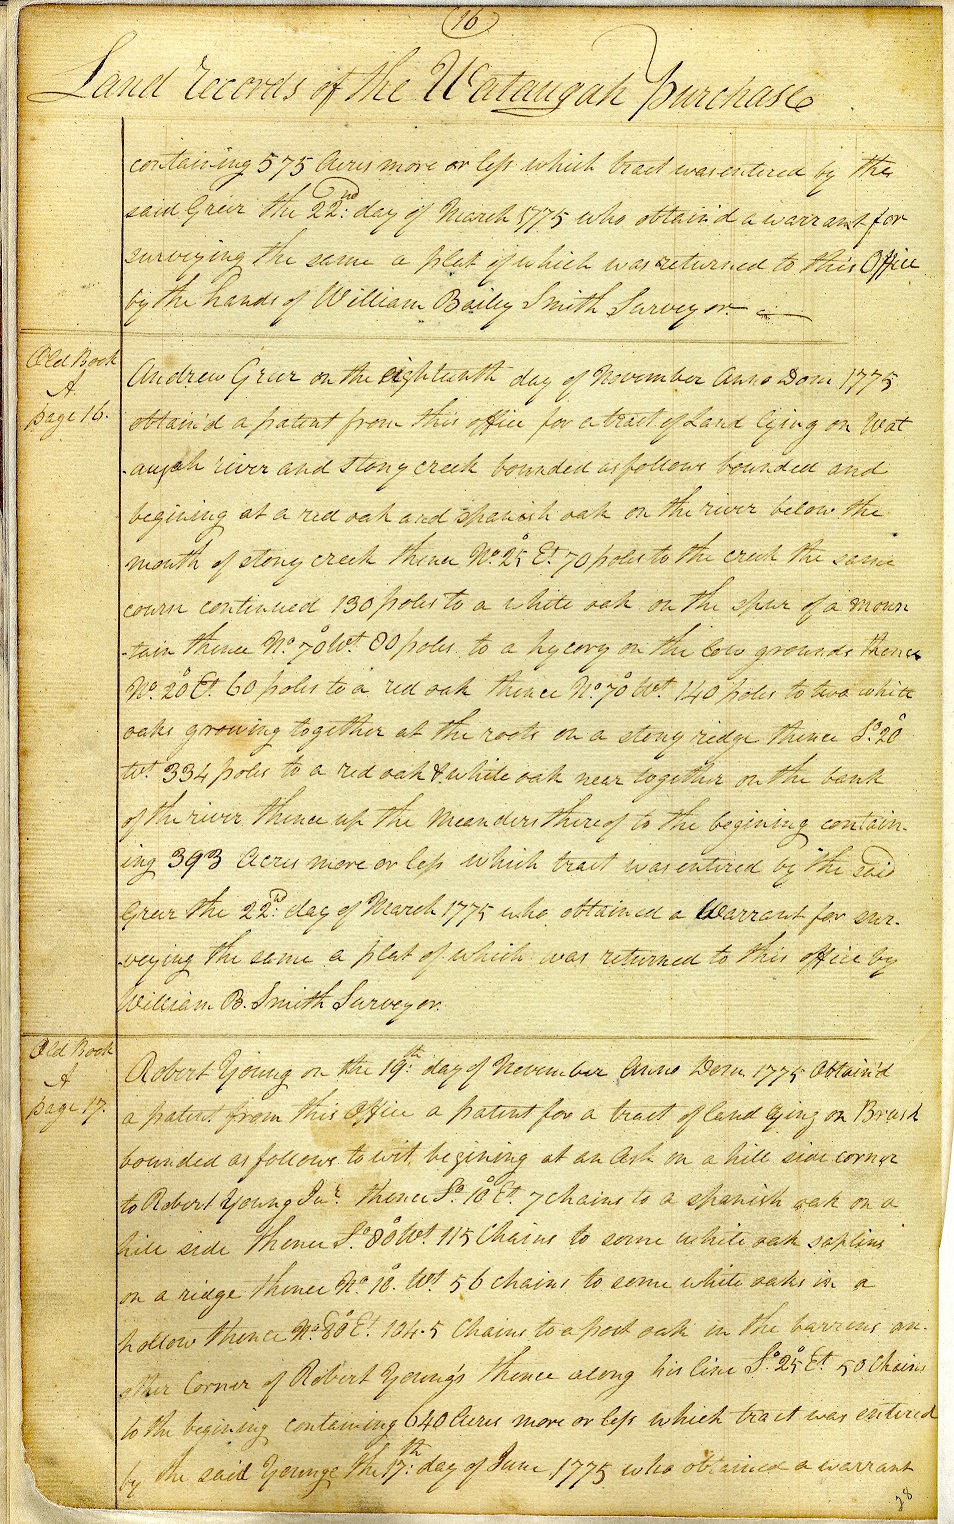 16
Land records of the Wataugah purchase
containing 575 Acres more or less which tract was entered by the
said Greer the 22nd: day of March 1775 who obtain'd a warrant for
surveying the same a plat of which was returned to this Office
by the hands of William Bailey Smith Surveyor
Old Book
A
page 16.
Andrew Greer on the eighteenth day of November Anno Dom 1775
obtain'd a patent from this office for a tract of Land lying on Wat
-augah river and stony creek bounded as follows bounded and
begining at a red oak and spanish oak on the river below the
mouth of stony creek thence No. 25° Et. 70 poles to the creek the same
course continued 130 poles to a white oak on the spur of a moun
-tain thence No. 70° Wt. 80 poles to a hycory on the low grounds thence
No. 20° Et. 60 poles to a red oak thence No. 70° Wt. 140 poles to two white
oaks growing together at the roots on a stony ridge thence So. 20°
Wt. 334 poles to a red oak & white oak near together on the bank
of the river thence up the meanders thereof to the begining contain-
ing 393 Acres more or less which tract was entered by the said
Greer the 22d: day of March 1775 who obtained a Warrant for sur-
-veying the same a plat of which was returned to this office by
William B. Smith Surveyor.
Old Book
A
page 17.
Robert Young on the 19th: day of November Anno Dom 1775 Obtain'd
a patent from this Office a patent for a tract of land lying on Brush
bounded as follows to wit, begining at an Ash on a hill side corner
to Robert Young Junr. thence So. 10° Et. 7 chains to a spanish oak on a
hill side thence So. 80° Wt. 115 Chains to some white oak saplins
on a ridge thence No. 10. Wt. 56 chains to some white oaks in a
hollow thence No. 80° Et. 104.5 Chains to a post oak in the barrens an-
other Corner of Robert Young's thence along his line So. 25° Et. 50 Chains
to the begining containing 640 Acres more or less which tract was entered
by the said Younge the 17th: day of June 1775 who obtained a warrant
28